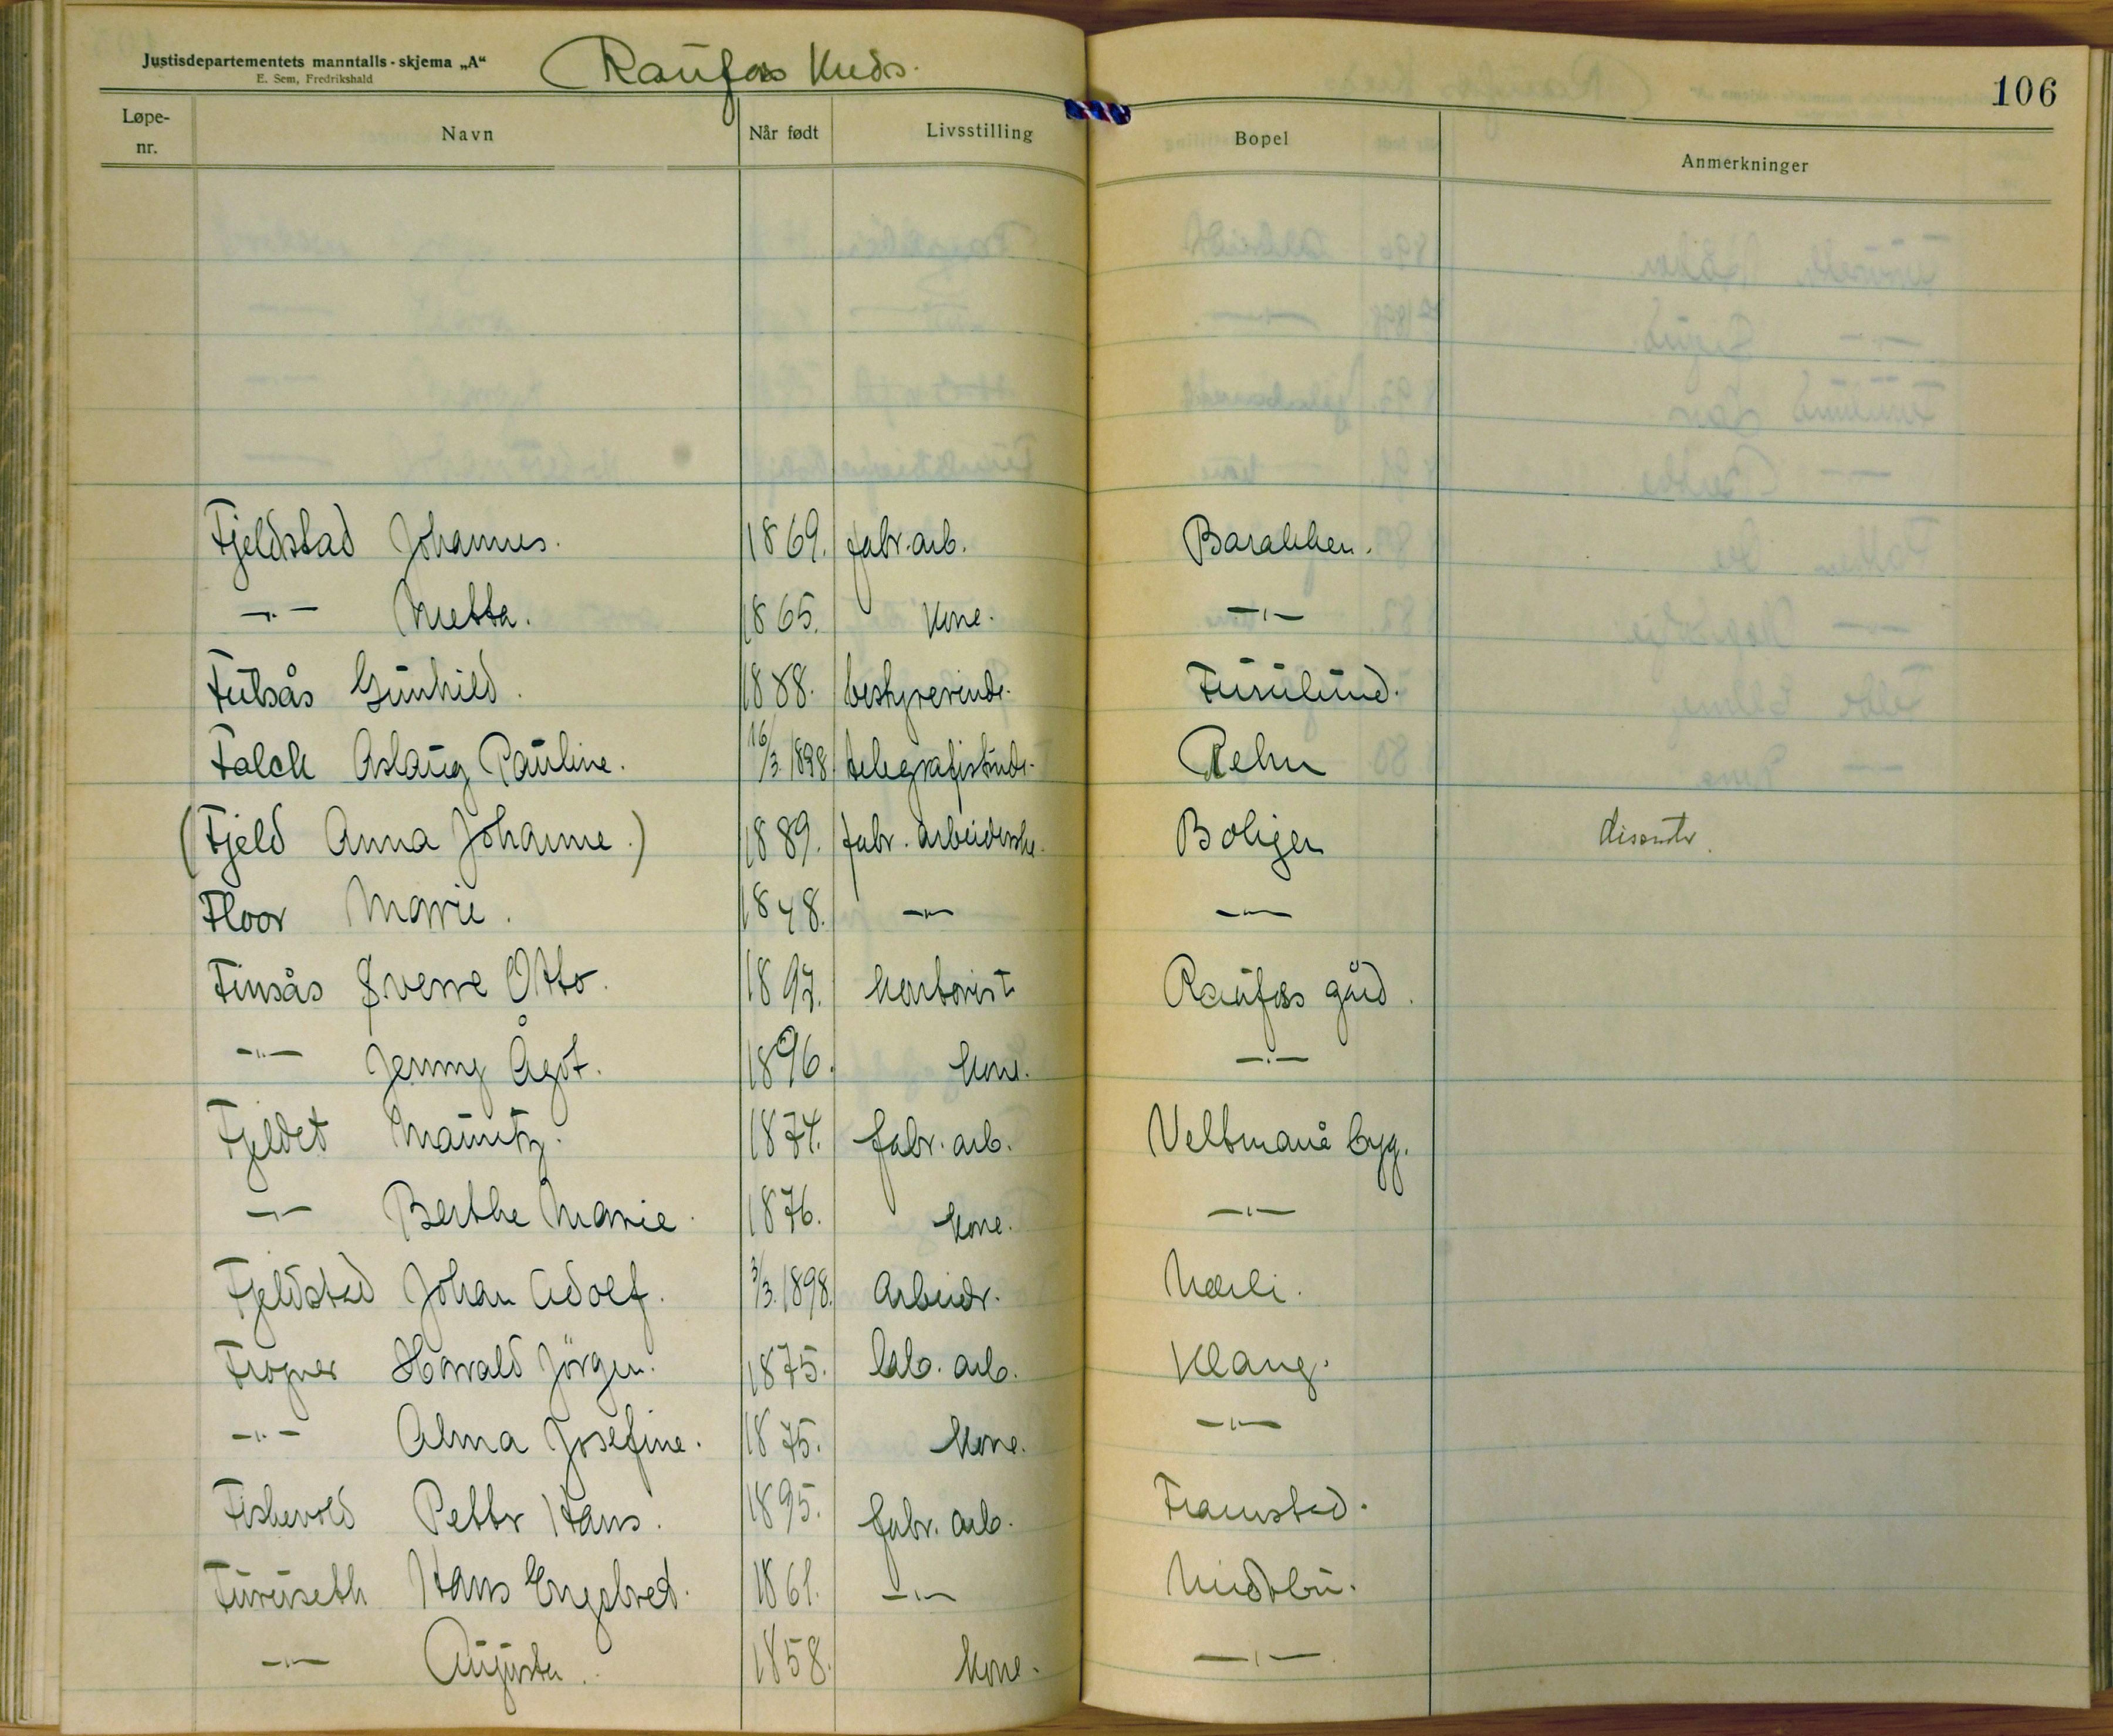 Justisdepartementets manntalls-skjema „A“
E. Sem, Fredrikshald
Raufoss Kreds.
106
Løpe-nr. Navn Når født Livsstilling Bopel Anmerkninger
Fjeldstad Johannes. 1869. fabr. arb. Barakken.
—"— Metta. 1865. Kone. —"—
Gunhild. 1888. bestyrerinde. Furulund.
Falck Aslaug Pauline. 16/3. 1898. telegrafistinde. Rehn
(Fjeld Anna Johanne.) 1889. fabr. arbeiderske. Boliger disenter.
Floor Marie. 1848. —"— —"—
Finsås Sverre Otto. 1897. kontorist Raufoss gård.
—"— Jenny Ågot. 1896. Kone. —"—
Fjeldet Mauritz. 1874. fabr. arb. byg.
—"— Berthe Marie. 1876. Kone. —"—
Fjeldstad Johan Adolf. 3/3. 1898. Arbeider. Nærli.
Frogner Harald Jörgen. 1875. lab. arb. Klang.
—"— Alma Josefine. 1875. Kone. —"—
Fiskevold Petter Hans. 1895. fabr. arb. Framstad.
Furuseth Hans Engebret. 1861. —"— Midtbu.
—"— Augusta. 1858. Kone. —"—